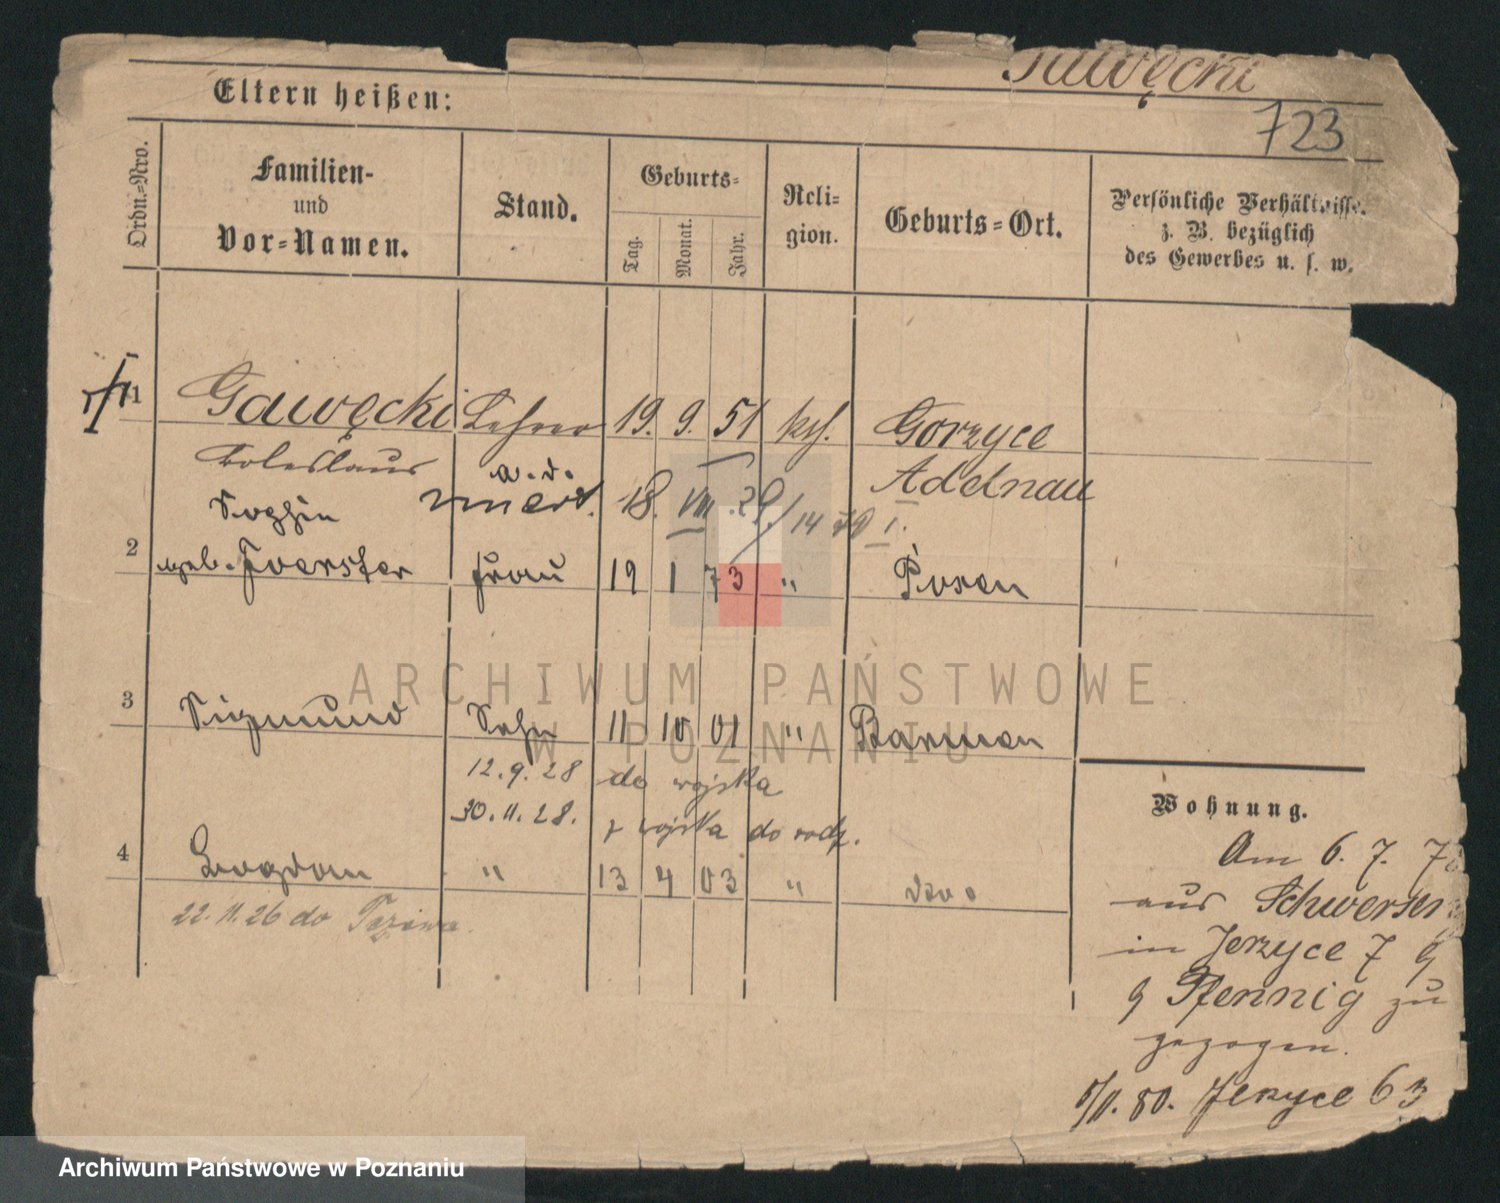 Gawęcki
Eltern heißen:
723
Ordn.=Nro.
Familien-
und
Vor=Namen.
Stand.
Geburts=
Tag.
Monat.
Jahr.
Reli=
gion.
Geburts=Ort.
Persönliche Verhältnisse.
z. B. bezüglich
des Gewerbes u. s. w.
1 Gawęcki Lehrer 19. 9. 51 kth. Gorzyce
Boleslaus a. d. Adelnau
umarł. 18. VIII. 29.
Sophia
2 geb. Foerster Frau 19 1 73 " Posen
3 Sigmund Sohn 11 10 01 " Barmen
12.9.28 do wojska
30.11.28. z wojska do rodz.
4 Bogdan " 13 4 03 " dto
22.11.26 do
Wohnung.
Am 6. 7. 7
aus Schwersen
in Jerzyce 7 g
g Pfennig zu
gezogen.
5/11. 80. Jerzyce 63
ARCHIWUM PAŃSTWOWE
W POZNANIU
Archiwum Państwowe w Poznaniu